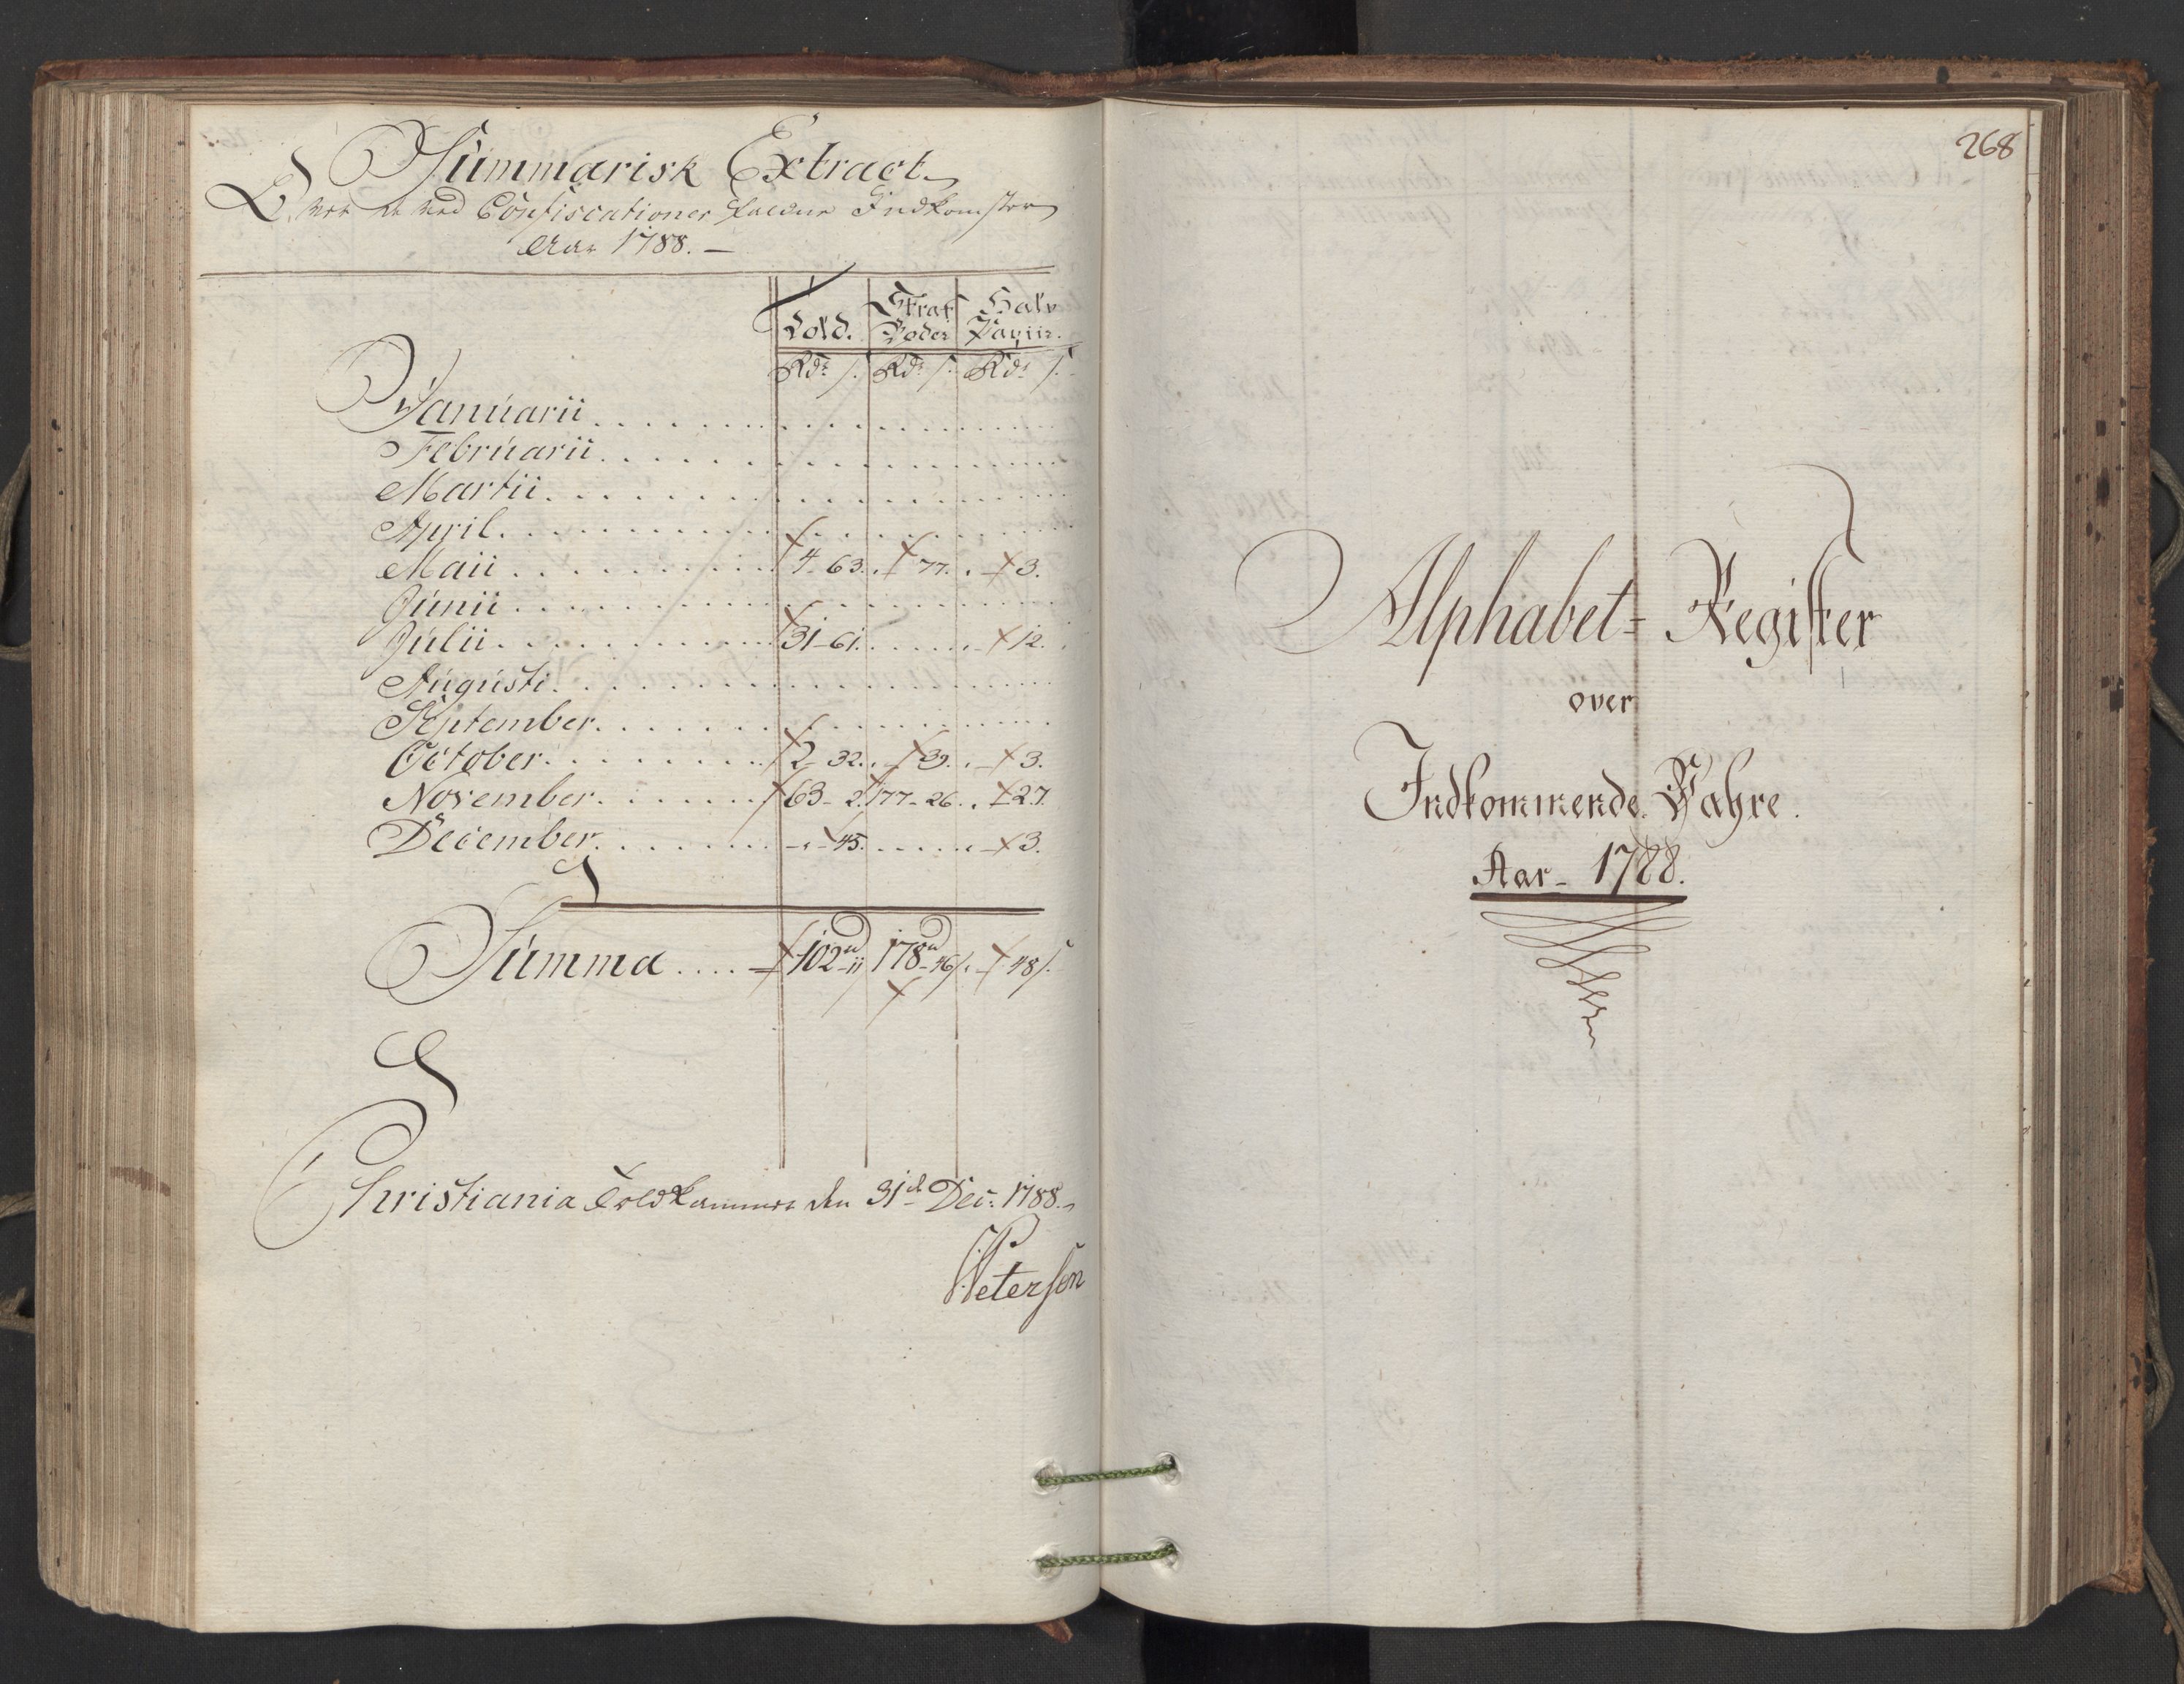 Summarisk Extract
Over de ved Confiscationer faldne Indkomster
Aar 1788.
Told. Straf Bøder Halv Pagiir.
Rdr s. Rdr s. Rdr s.
Januarii
Februarii
Martii
April
Maii 4 63. 77. 3.
Junii
Julii 31-61. 12.
Augusti
September
October 2- 32. 39. 3.
November 63- 2. 177- 26. 27.
December 45. 3.
Summa 102-11 178-46 48
Christiania Toldkammer den 31 Dec: 1788.
Peterson
268
Alphabet= Register
over
Indkommende Vahre.
Aar- 1788.